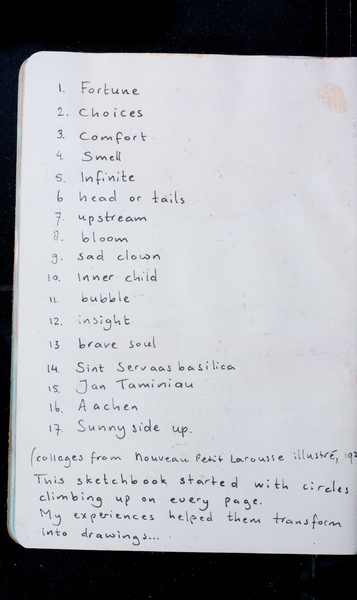 1. Fortune
2. Choices
3. Comfort
4. Smell
5. Infinite
6 head or tails
7. upstream
8. bloom
9. sad clown
10. Inner child
11. bubble
12. insight
13 brave soul
14. Sint Servaas basilica
15. Jan Taminiau
16. Aachen
17. Sunny side up.
(collages from Nouveau Petit Larousse illustré,
This sketchbook started with circles
climbing up on every page.
My experiences helped them transform
into drawings...